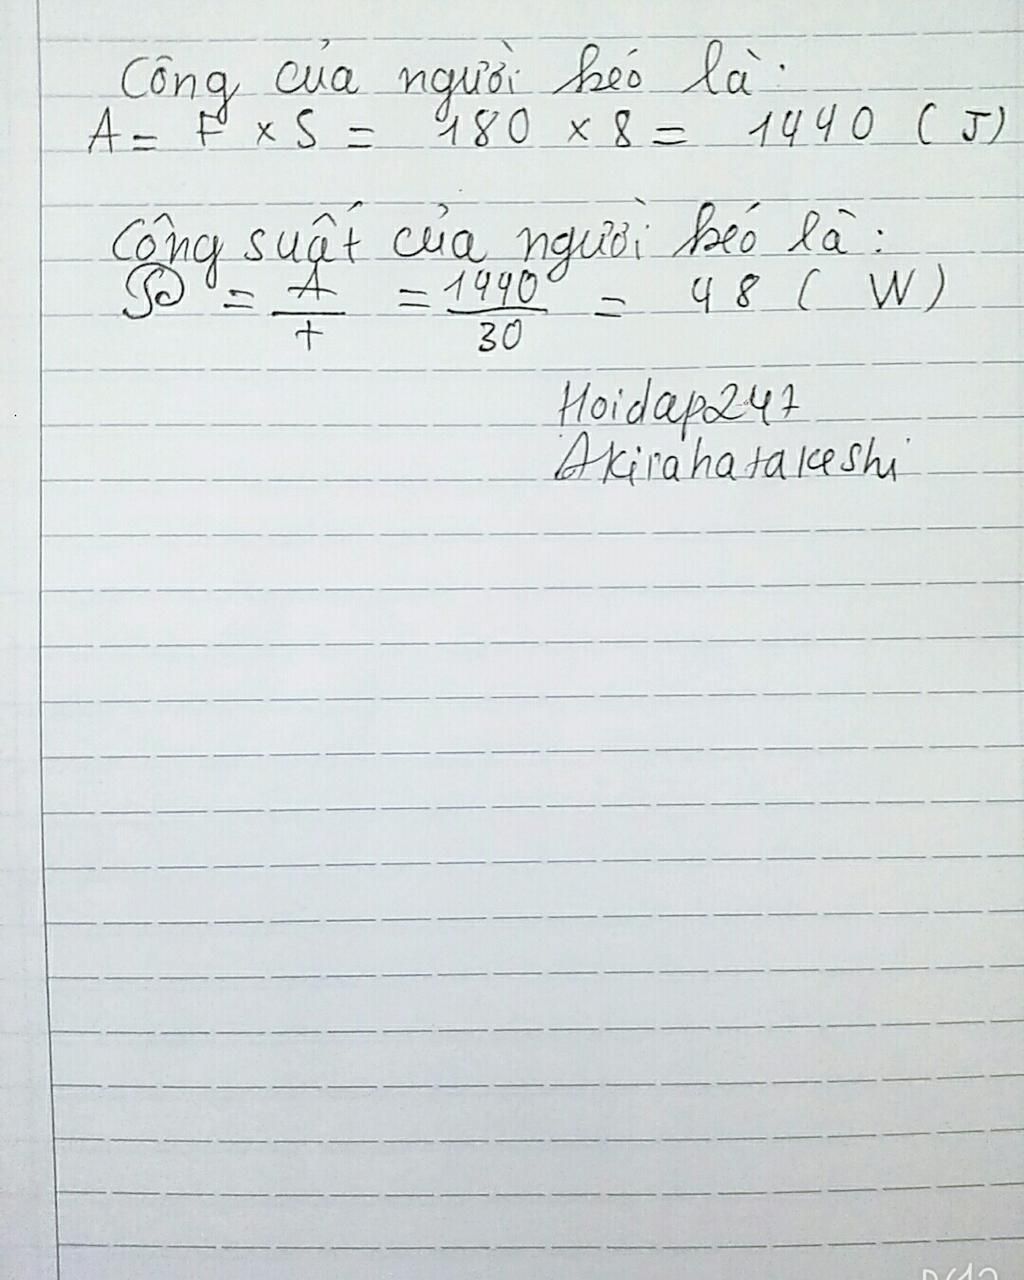 Công của người kéo là:
A = F x S = 180 x 8 = 1440 (J)
Công suất của người kéo là:
𝒫 = A/t = 1440/30 = 48 (W)
Hoidap247
Akirahatakeshi